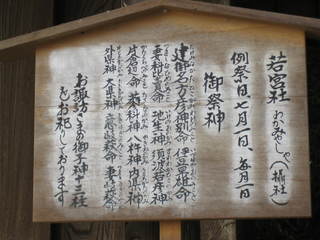 若宮社 わかみやしゃ(攝社)
例祭日、七月一日、毎月一日
御祭神
建御名方彦神別命 伊豆早雄命
妻科比売命 池生神 須波若彦神
片倉辺命 蓼科神 八杵神 内県神
外県神 大県神 意岐萩命 妻岐萩命
お諏訪さまの御子神十三柱
をお祀りしております